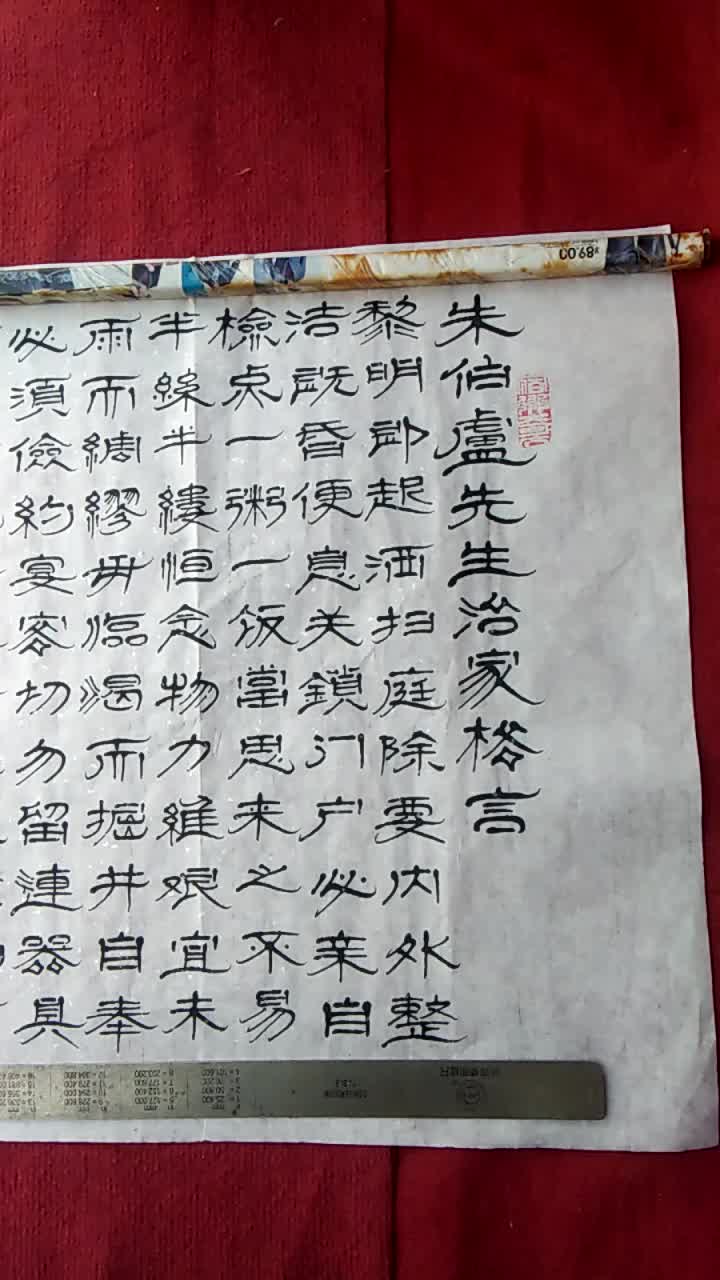 朱伯盧先生治家格言
黎明即起洒扫庭除要内外整
洁既昏便息关鎖门户必亲自
檢点一粥一饭當思来之不易
半絲半縷恒念物力維艰宜未
雨而綢繆毋臨渴而掘井自奉
必須儉約宴客切勿留連器具
89.00